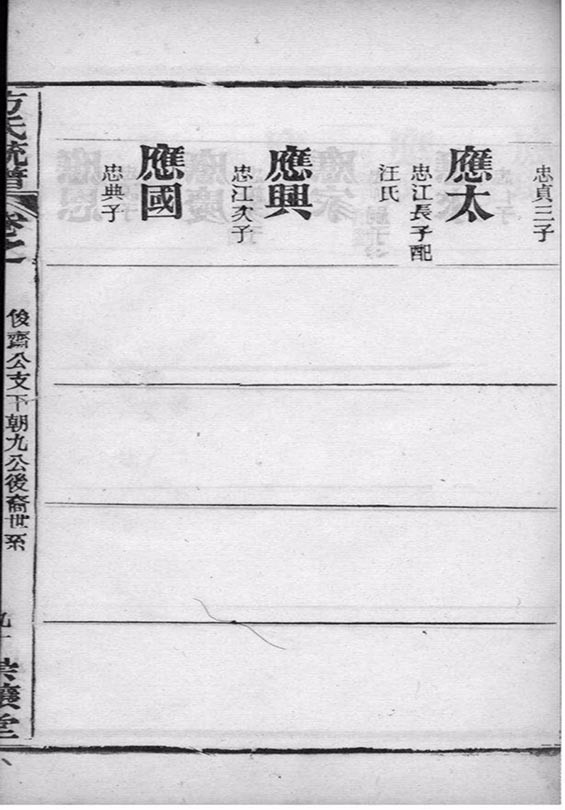 忠貞三子
應太
忠江長子配
汪氏
應興
忠江次子
應國
忠典子
方氏統譜
卷之一
俊齋公支下朝九公後裔世系
九一
堂